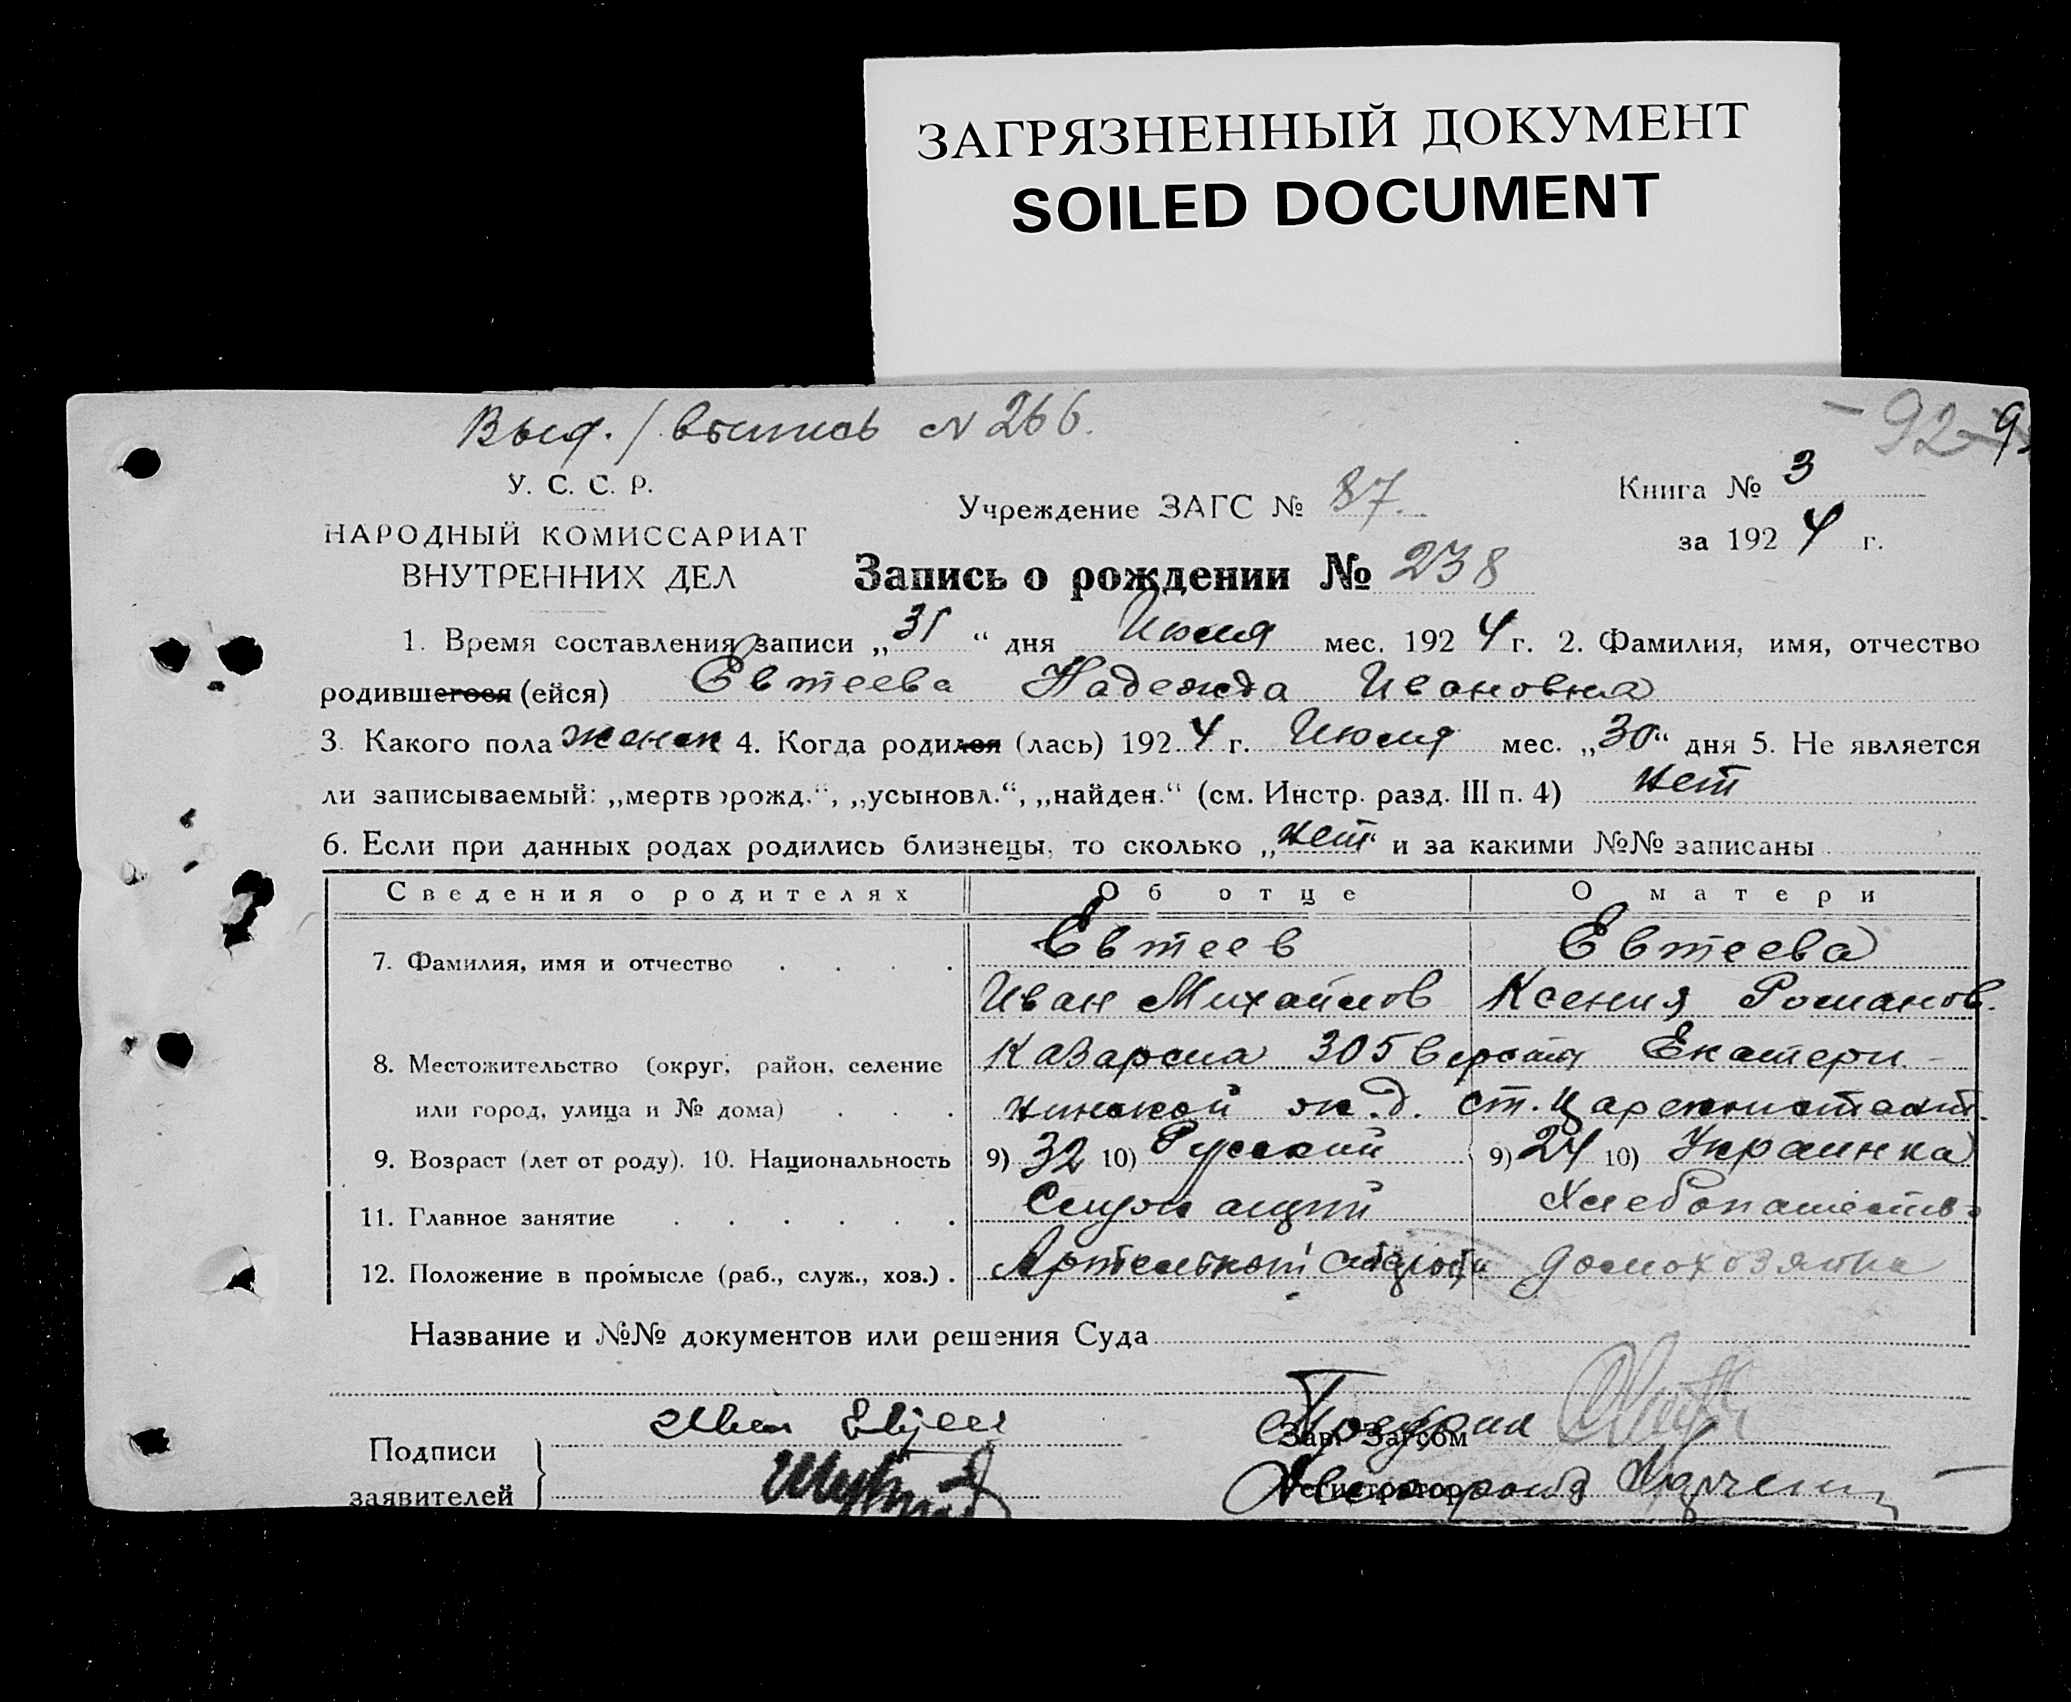 ЗАГРЯЗНЕННЫЙ ДОКУМЕНТ
SOILED DOCUMENT
Выд. / выпись № 266.
92
У. С. С. Р.
Учреждение ЗАГС № 87.
Книга № 3
НАРОДНЫЙ КОМИССАРИАТ
за 1924 г.
ВНУТРЕННИХ ДЕЛ
Запись о рождении № 238
1. Время составления записи „31“ дня Июля мес. 1924 г. 2. Фамилия, имя, отчество
родившегося (ейся) Евтеева Надежда Ивановна
3. Какого пола женск 4. Когда родился (лась) 1924 г. Июля мес. „30“ дня 5. Не является
ли записываемый: „мертворожд.“, „усыновл.“, „найден.“ (см. Инстр. разд. III п. 4) нет
6. Если при данных родах родились близнецы, то сколько „нет“ и за какими №№ записаны
Сведения о родителях Об отце О матери
7. Фамилия, имя и отчество Евтеев Евтеева
Иван Михайлов Ксения Романов.
8. Местожительство (округ, район, селение Казарма 305 версты Екатери-
или город, улица и № дома) нинской ж.д. ст. Цареконстант.
9. Возраст (лет от роду). 10. Национальность 9) 32 10) Русский 9) 24 10) Украинка
11. Главное занятие Служащий Хлебопашеств
12. Положение в промысле (раб., служ., хоз.) Артельный староста домохозяйка
Название и №№ документов или решения Суда
Подписи
заявителей
Зав. Загсом
Регистратор